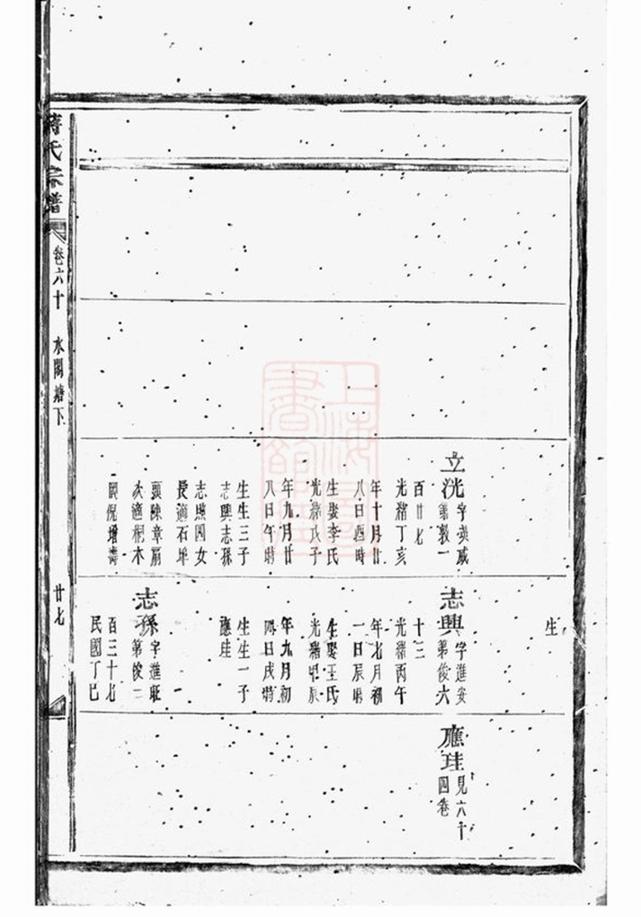 立洸 字炎咸
第毅一
百廿七
光緒丁亥
年十月廿
八日酉時
生娶李氏
光緒戊子
年九月廿
八日午時
生生三子
志興志孫
志熙四女
長適石埠
頭陳章
次適桐木
倪增壽
生
志興 字進安
第俊六
十三
光緒丙午
年七月初
一日辰時
生娶王氏
光緒甲辰
年九月初
四日戌時
生生一子
應珪
志孫 字進旺
第俊二
百三十七
民國丁巳
應珪 見六十
四卷
蔣氏宗譜 卷六十 水閣塘下 廿七
上海圖書館藏